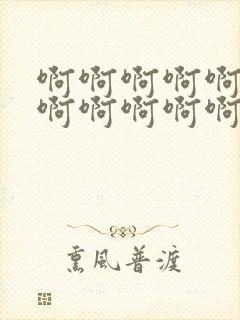 啊啊啊啊啊
啊啊啊啊啊
熏風普渡